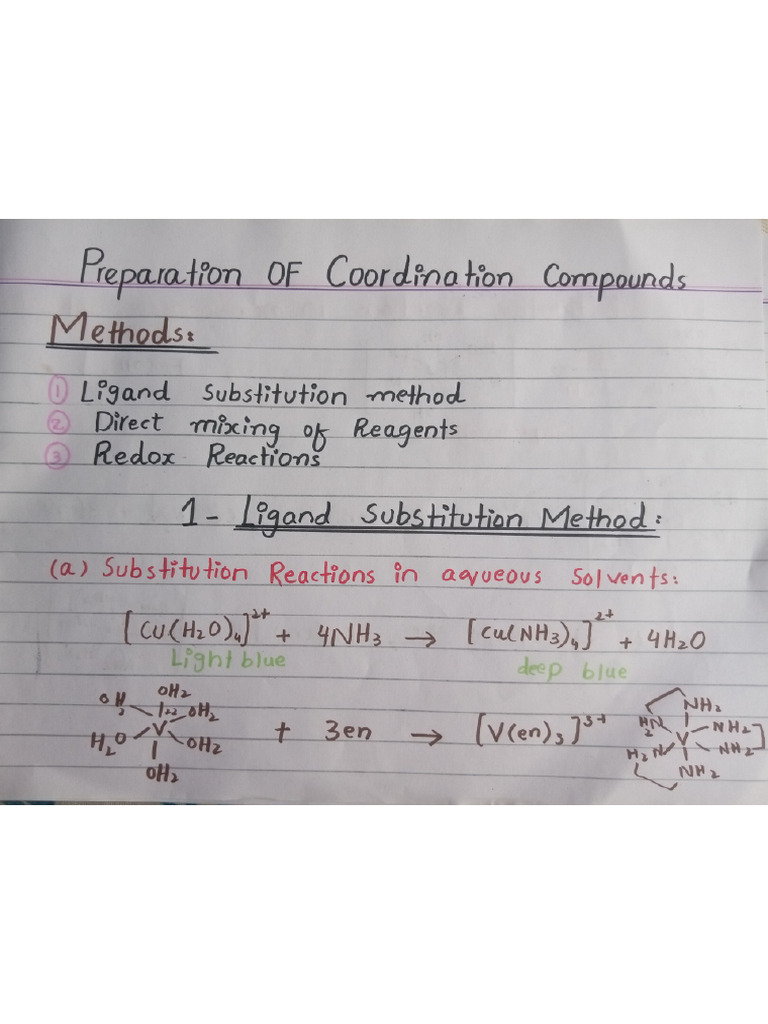 Preparation OF Coordination Compounds
Methods:
① Ligand Substitution method
② Direct mixing of Reagents
③ Redox Reactions
1- Ligand Substitution Method:
(a) Substitution Reactions in aqueous Solvents:
[Cu(H2O)4]2+ + 4NH3 → [Cu(NH3)4]2+ + 4H2O
Light blue deep blue
OH2 OH2 OH2 H2O V OH2 OH2 + 3en → [V(en)3]3+ NH2 H2N NH2 V H2N NH2 NH2